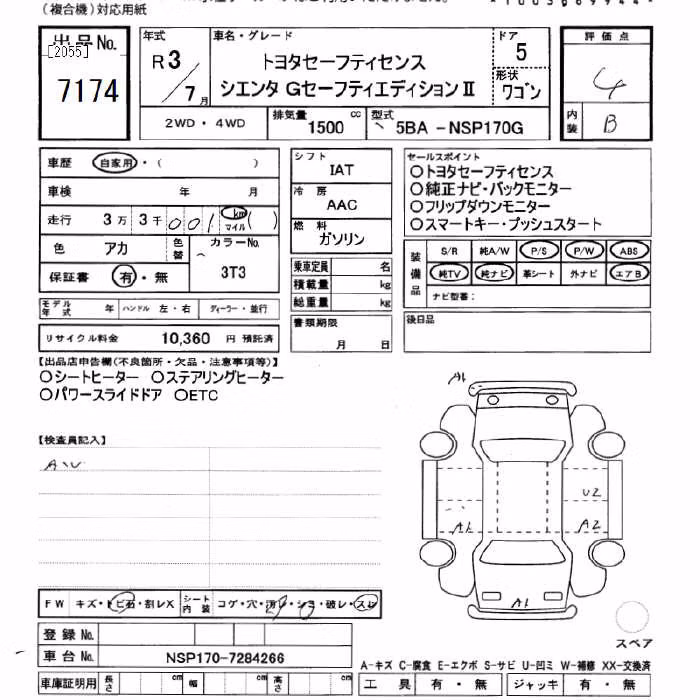 (複合機)対応用紙
出品No.
[2055]
7174
年式
R3/7月
車名・グレード
トヨタセーフティセンス
シエンタ GセーフティエディションⅡ
ドア
5
形状
ワゴン
評価点
4
内装
B
2WD・4WD
排気量
1500 cc
型式
5BA -NSP170G
車歴 自家用・( )
車検 年 月
走行 3万 3千 001 km マイル ( )
色 アカ 色替 カラーNo.
3T3
保証書 有・無
モデル年式 年 ハンドル 左・右 ディーラー・並行
リサイクル料金 10,360 円 預託済
シフト
IAT
冷房
AAC
燃料
ガソリン
乗車定員 名
積載量 kg
総重量 kg
書類期限
月 日
セールスポイント
○トヨタセーフティセンス
○純正ナビ・バックモニター
○フリップダウンモニター
○スマートキー・プッシュスタート
装備品
S/R 純A/W P/S P/W ABS
純TV 純ナビ 革シート 外ナビ エアB
ナビ型番:
後日品
【出品店申告欄(不良箇所・欠品・注意事項等)】
○シートヒーター ○ステアリングヒーター
○パワースライドドア ○ETC
【検査員記入】
A・U
A1
U2
A1
A2
A1
FW キズ・トビ石・割レX シート内装 コゲ・穴・汚レ・シミ・破レ・スレ
登録No.
車台No. NSP170-7284266
車庫証明用 長さ cm 幅 cm 高さ cm
スペア
A-キズ C-腐食 E-エクボ S-サビ U-凹ミ W-補修 XX-交換済
工具 有・無 ジャッキ 有・無